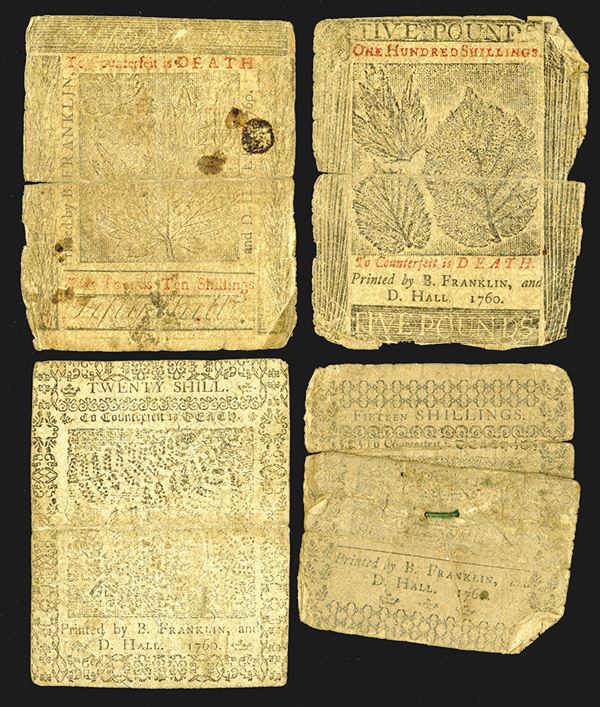 To Counterfeit is DEATH
by B. FRANKLIN,
and D. H
Ten Shillings
FIVE POUNDS
ONE HUNDRED SHILLINGS.
To Counterfeit is DEATH.
Printed by B. FRANKLIN, and
D. HALL. 1760.
FIVE POUNDS
TWENTY SHILL.
To Counterfeit is DEATH.
Printed by B. FRANKLIN, and
D. HALL. 1760.
FIFTEEN SHILLINGS.
To Counterfeit
Printed by B. FRANKLIN, and
D. HALL. 1760